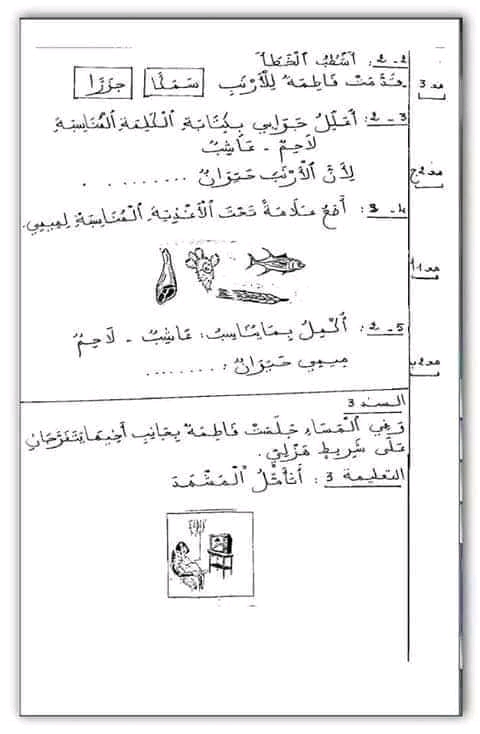 2-2: أَشْطُبُ الْخَطَأَ
قَدَّمَتْ فَاطِمَةُ لِلْأَرْنَبِ سَمَكًا جَزَرًا
مع 3
2-3: أُعَلِّلُ جَوَابِي بِكِتَابَةِ الْكَلِمَةِ الْمُنَاسِبَةِ
لَاحِمٌ - عَاشِبٌ
لِأَنَّ الْأَرْنَبَ حَيَوَانٌ ..........
مع 2 ج
2-4: أَضَعُ عَلَامَةً تَحْتَ الْأَغْذِيَةِ الْمُنَاسِبَةِ لِمِيمِي.
مع 1 أ
2-5: أُكْمِلُ بِمَا يُنَاسِبُ: عَاشِبٌ - لَاحِمٌ
مِيمِي حَيَوَانٌ: .........
مع 2 ب
السند 3
وَفِي الْمَسَاءِ جَلَسَتْ فَاطِمَةُ بِجَانِبِ أَخِيهَا يَتَفَرَّجَانِ
عَلَى شَرِيطٍ هَزَلِيٍّ.
التعليمة 3: أَتَأَمَّلُ الْمَشْهَدَ